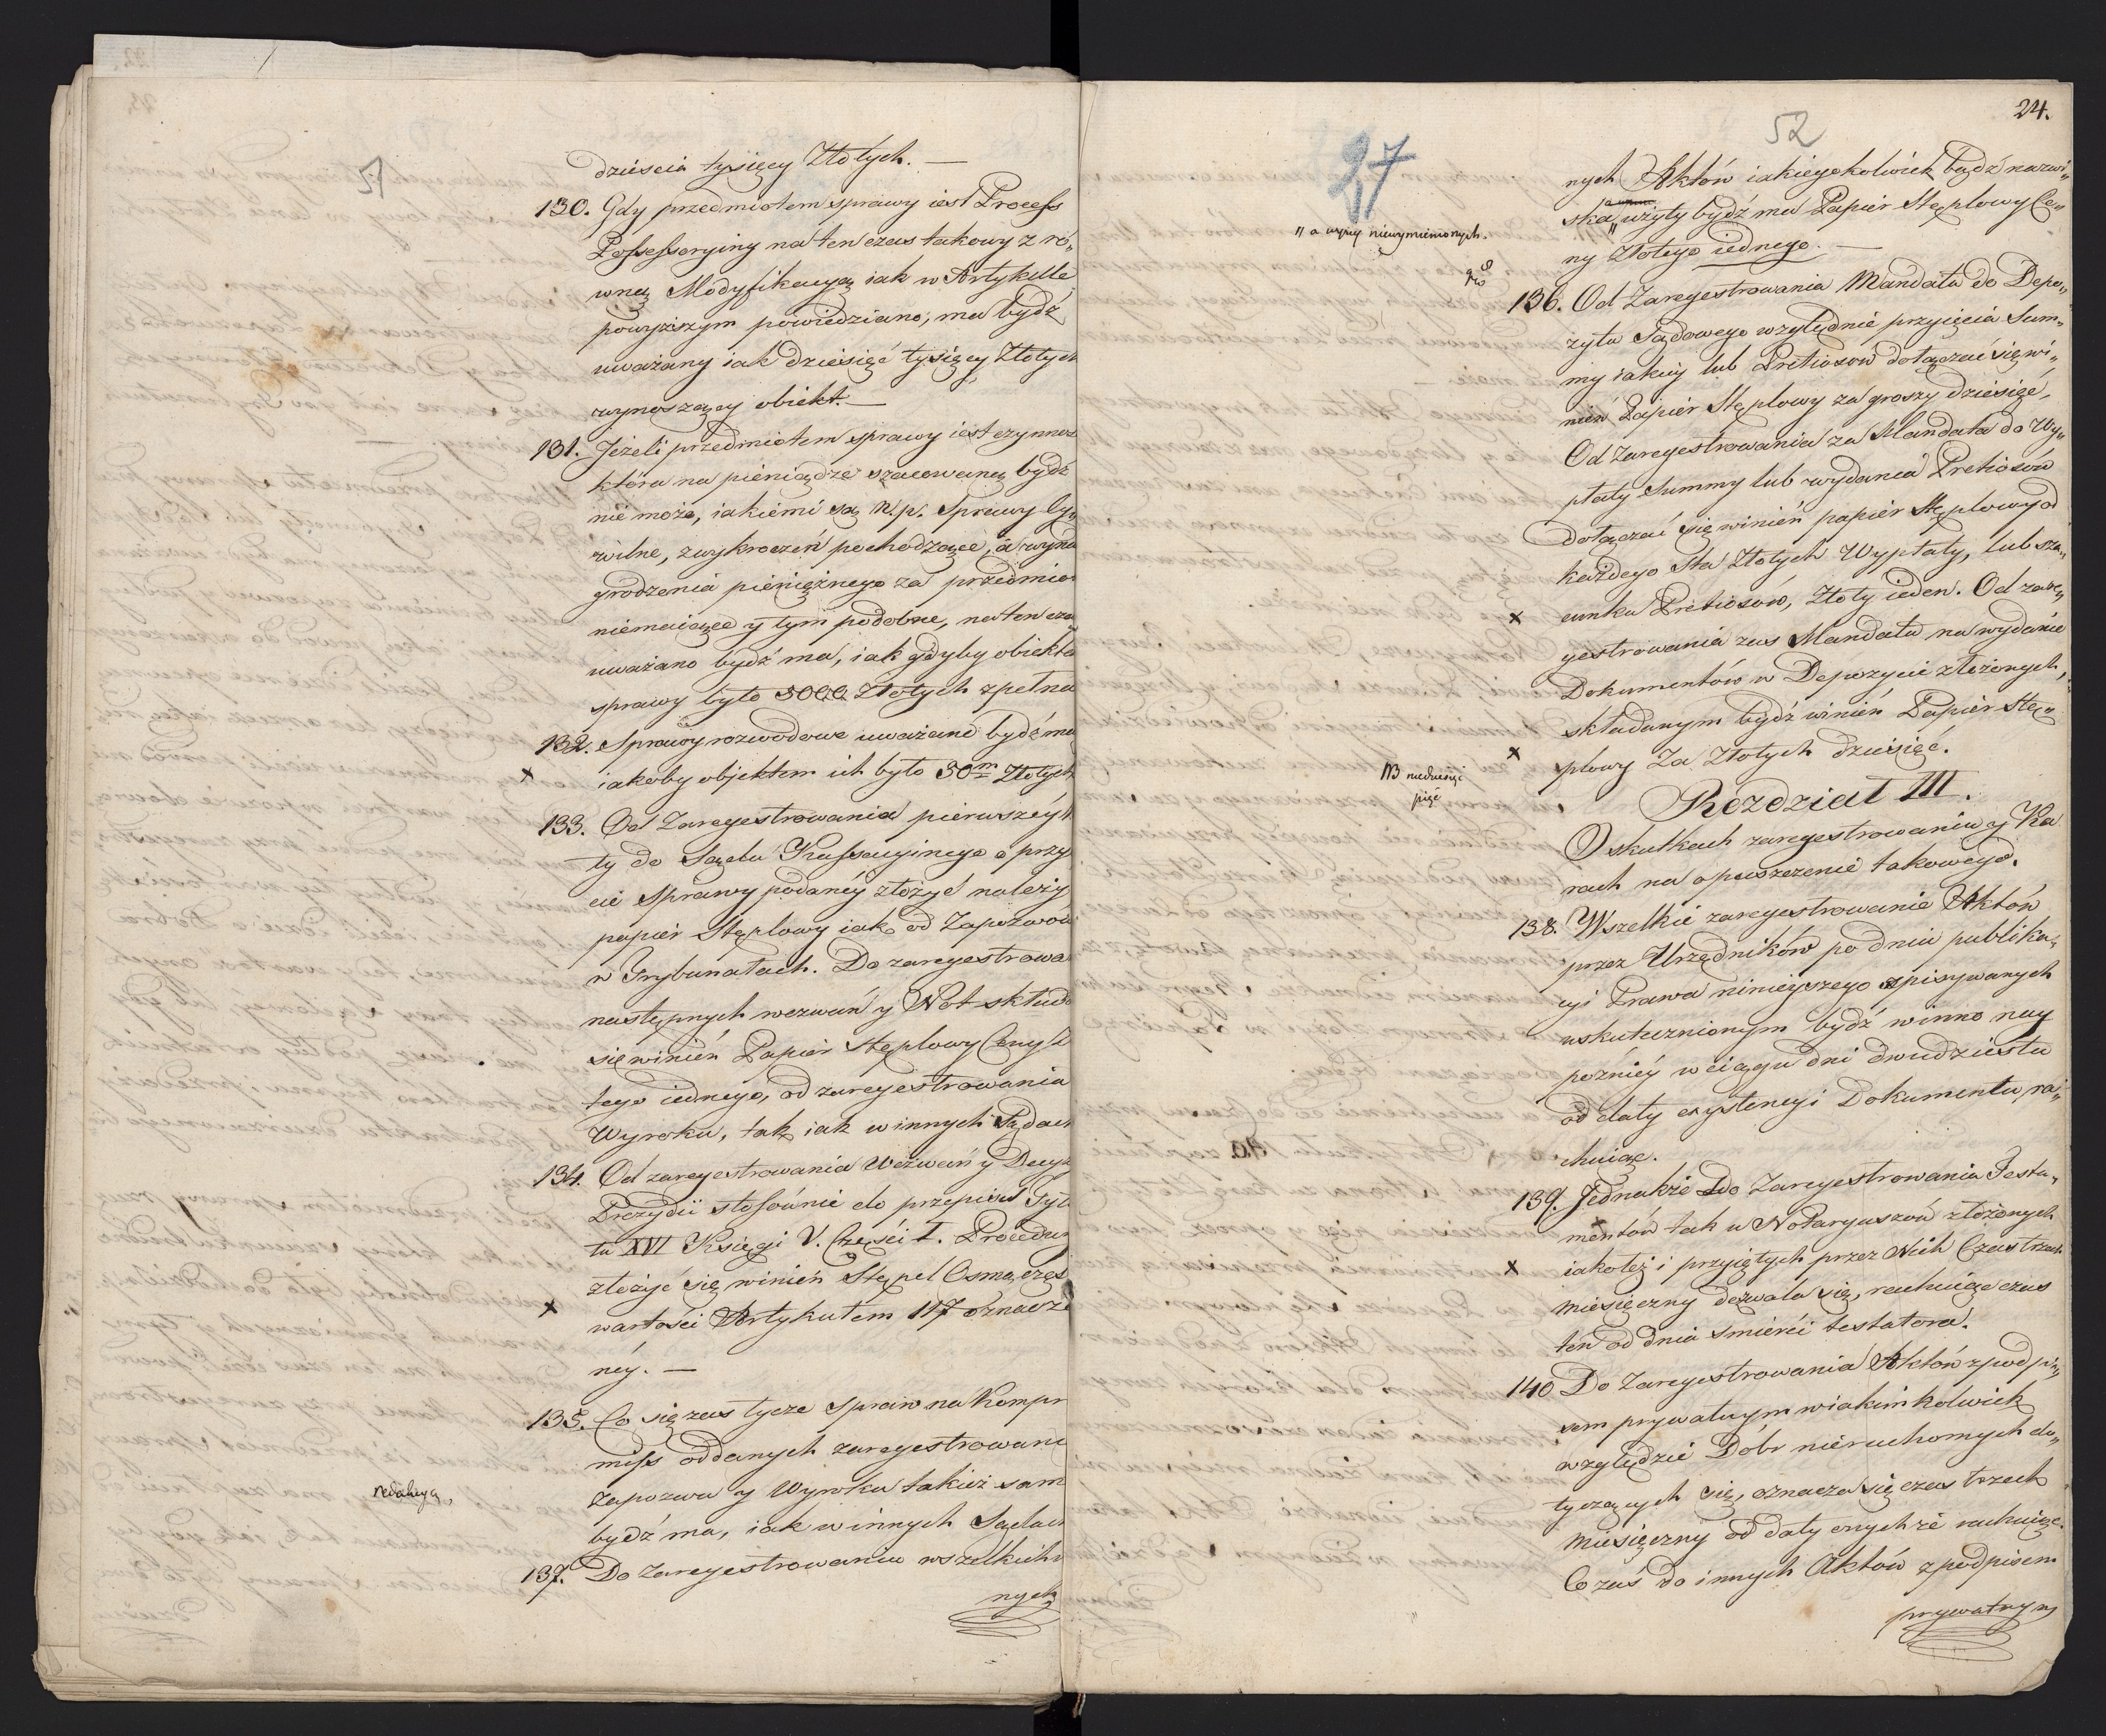 51
dzieścia tysięcy Złotych. —
130. Gdy przedmiotem sprawy iest Process
Possessoryiny na ten czas takowy z ró„
wną Modyfikacyą iak w Artykule
powyższym powiedziano, ma bydź
uważany iak dziesięć tysięcy Złotych
wynoszący obiekt. —
131. Jeżeli przedmiotem sprawy iest czynnoś
która na pieniądze szacowaną bydź
nie może, iakiemi są N.p. Sprawy Cy„
wilne, z wykroczeń pochodzące, a wyna
grodzenia pieniężnego za przedmiot
niemaiące y tym podobne, na ten czas
uważano bydź ma, iak gdyby obiekte
sprawy było 5000 Złotych zpełna
132. Sprawy rozwodowe uważane bydź ma
x iakoby objektem ich było 30m Złotych
133. Od Zaregestrowania pierwszéy N
ty do Sądu Kassacyinego o przy
cie Sprawy podanéy złożyć należy
papier Stęplowy iak od Zapozwów
w Trybunałach. Do zaregestrowa
następnych wezwań y Not składa
się winien Papier Stęplowy Ceny Z
tego iednego, od zaregestrowania
Wyroku, tak iak w innych Sądach
134. Od zaregestrowania Wezwań y Decyz
Prezydii stosównie do przepisu Tytu
łu XVI Księgi V. Części I. Procedury
złożyć się winien Stępel Osmą częs
x wartości Artykułem 117 oznacze
néy. —
135. Co się zas tycze Spraw na Kompr
miss oddanych zaregestrowani
Zapozwu y Wyroku takież sam
redakcya, bydź ma, iak w innych Sądach
137. Do Zaregestrowania wszelkich
nych
24.
52
27
nych Aktów iakiegokolwiek bądź nazwi„
ska, użyty bydź ma Papier Stęplowy Ce„
„ a wyżey niewymienionych.
ny Złotego iednego. —
136. Od Zaregestrowania Mandatu do Depo„
zytu Sądowego względnie przyięcia Sum„
my iakiéy lub Pretiosow dołączać się wi„
nien Papier Stęplowy za groszy dziesięć,
Od Zaregestrowania za Mandatu do Wy„
płaty Summy lub wydania Pretiosów
dołączać się winien papier Stęplowy od
każdego Sta Złotych Wypłaty, lub sza„
x cunku Pretiosów, Złoty ieden. Od zare„
gestrowania zas Mandatu na wydanie
Dokumentów w Depozycie złożonych,
składanym bydź winien Papier Stę„
x plowy Za Złotych dziesięć.
NB niedziesięć
pięć
Rozdział III.
O skutkach zaregestrowania y Ka
rach na opuszczenie takowego.
138. Wszelkie zaregestrowanie Aktów
przez Urzędników po dniu publika„
cyi Prawa ninieyszego spisywanych
uskutecznionym bydź winno nay
poźniéy w ciągu dni dwudziestu
od daty exystencyi Dokumentu ra„
chuiąc.
139. Jednakże do Zaregestrowania Testa„
mentów tak u Notaryuszów złożonych
x iakoteż i przyiętych przez Nich Czas trzech
miesięczny dozwala się, rachuiąc czas
ten od dnia Smierci testatora.
140 Do Zaregestrowania Aktów z podpi„
sem prywatnym w iakimkolwiek
względzie Dóbr nieruchomych do„
tyczących się, oznacza się czas trzech
miesięczny od daty onychże rachuiąc.
Co zaś do innych Aktów z podpisem
prywatnym